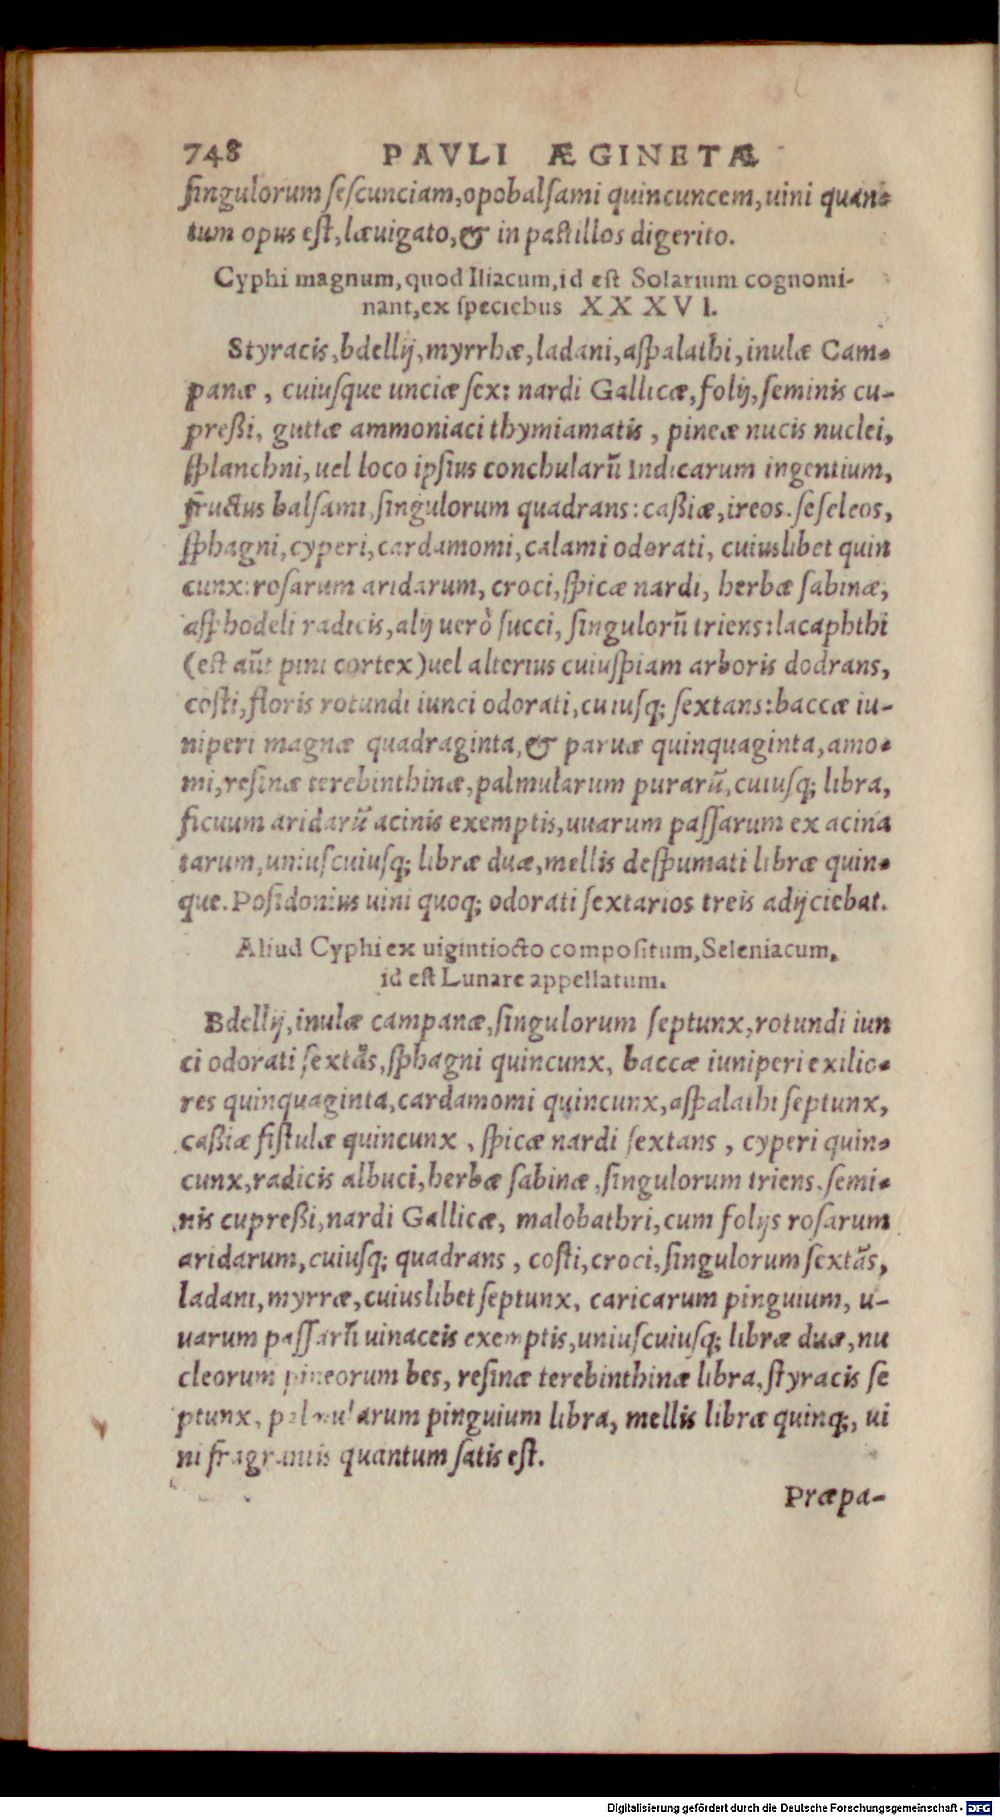 748 PAVLI ÆGINETÆ
singulorum sescunciam, opobalsami quincuncem, uini quan-
tum opus est, læuigato, & in pastillos digerito.
Cyphi magnum, quod Iliacum, id est Solarium cognomi-
nant, ex speciebus XXXVI.
Styracis, bdellij, myrrhæ, ladani, aspalathi, inulæ Cam-
panæ, cuiusque unciæ sex: nardi Gallicæ, folij, seminis cu-
preßi, guttæ ammoniaci thymiamatis, pineæ nucis nuclei,
splanchni, uel loco ipsius conchularū Indicarum ingentium,
fructus balsami, singulorum quadrans: caßiæ, ireos. seseleos,
sphagni, cyperi, cardamomi, calami odorati, cuiuslibet quin
cunx: rosarum aridarum, croci, spicæ nardi, herbæ sabinæ,
asphodeli radicis, alij uerò succi, singulorū triens: lacaphthi
(est aūt pini cortex) uel alterius cuiuspiam arboris dodrans,
costi, floris rotundi iunci odorati, cuiusq; sextans: baccæ iu-
niperi magnæ quadraginta, & paruæ quinquaginta, amo-
mi, resinæ terebinthinæ, palmularum purarū, cuiusq; libra,
ficuum aridarū acinis exemptis, uuarum passarum ex acina
tarum, uniuscuiusq; libræ duæ, mellis despumati libræ quin-
que. Posidonius uini quoq; odorati sextarios treis adijciebat.
Aliud Cyphi ex uigintiocto compositum, Seleniacum,
id est Lunare appellatum.
Bdellij, inulæ campanæ, singulorum septunx, rotundi iun
ci odorati sextās, sphagni quincunx, baccæ iuniperi exilio-
res quinquaginta, cardamomi quincunx, aspalathi septunx,
caßiæ fistulæ quincunx, spicæ nardi sextans, cyperi quin-
cunx, radicis albuci, herbæ sabinæ, singulorum triens. semi-
nis cupreßi, nardi Gallicæ, malobathri, cum folijs rosarum
aridarum, cuiusq; quadrans, costi, croci, singulorum sextās,
ladani, myrræ, cuiuslibet septunx, caricarum pinguium, u-
uarum passarū uinaceis exemptis, uniuscuiusq; libræ duæ, nu
cleorum pineorum bes, resinæ terebinthinæ libra, styracis se
ptunx, palmularum pinguium libra, mellis libræ quinq;, ui
ni fragrantis quantum satis est.
Præpa-
Digitalisierung gefördert durch die Deutsche Forschungsgemeinschaft - DFG